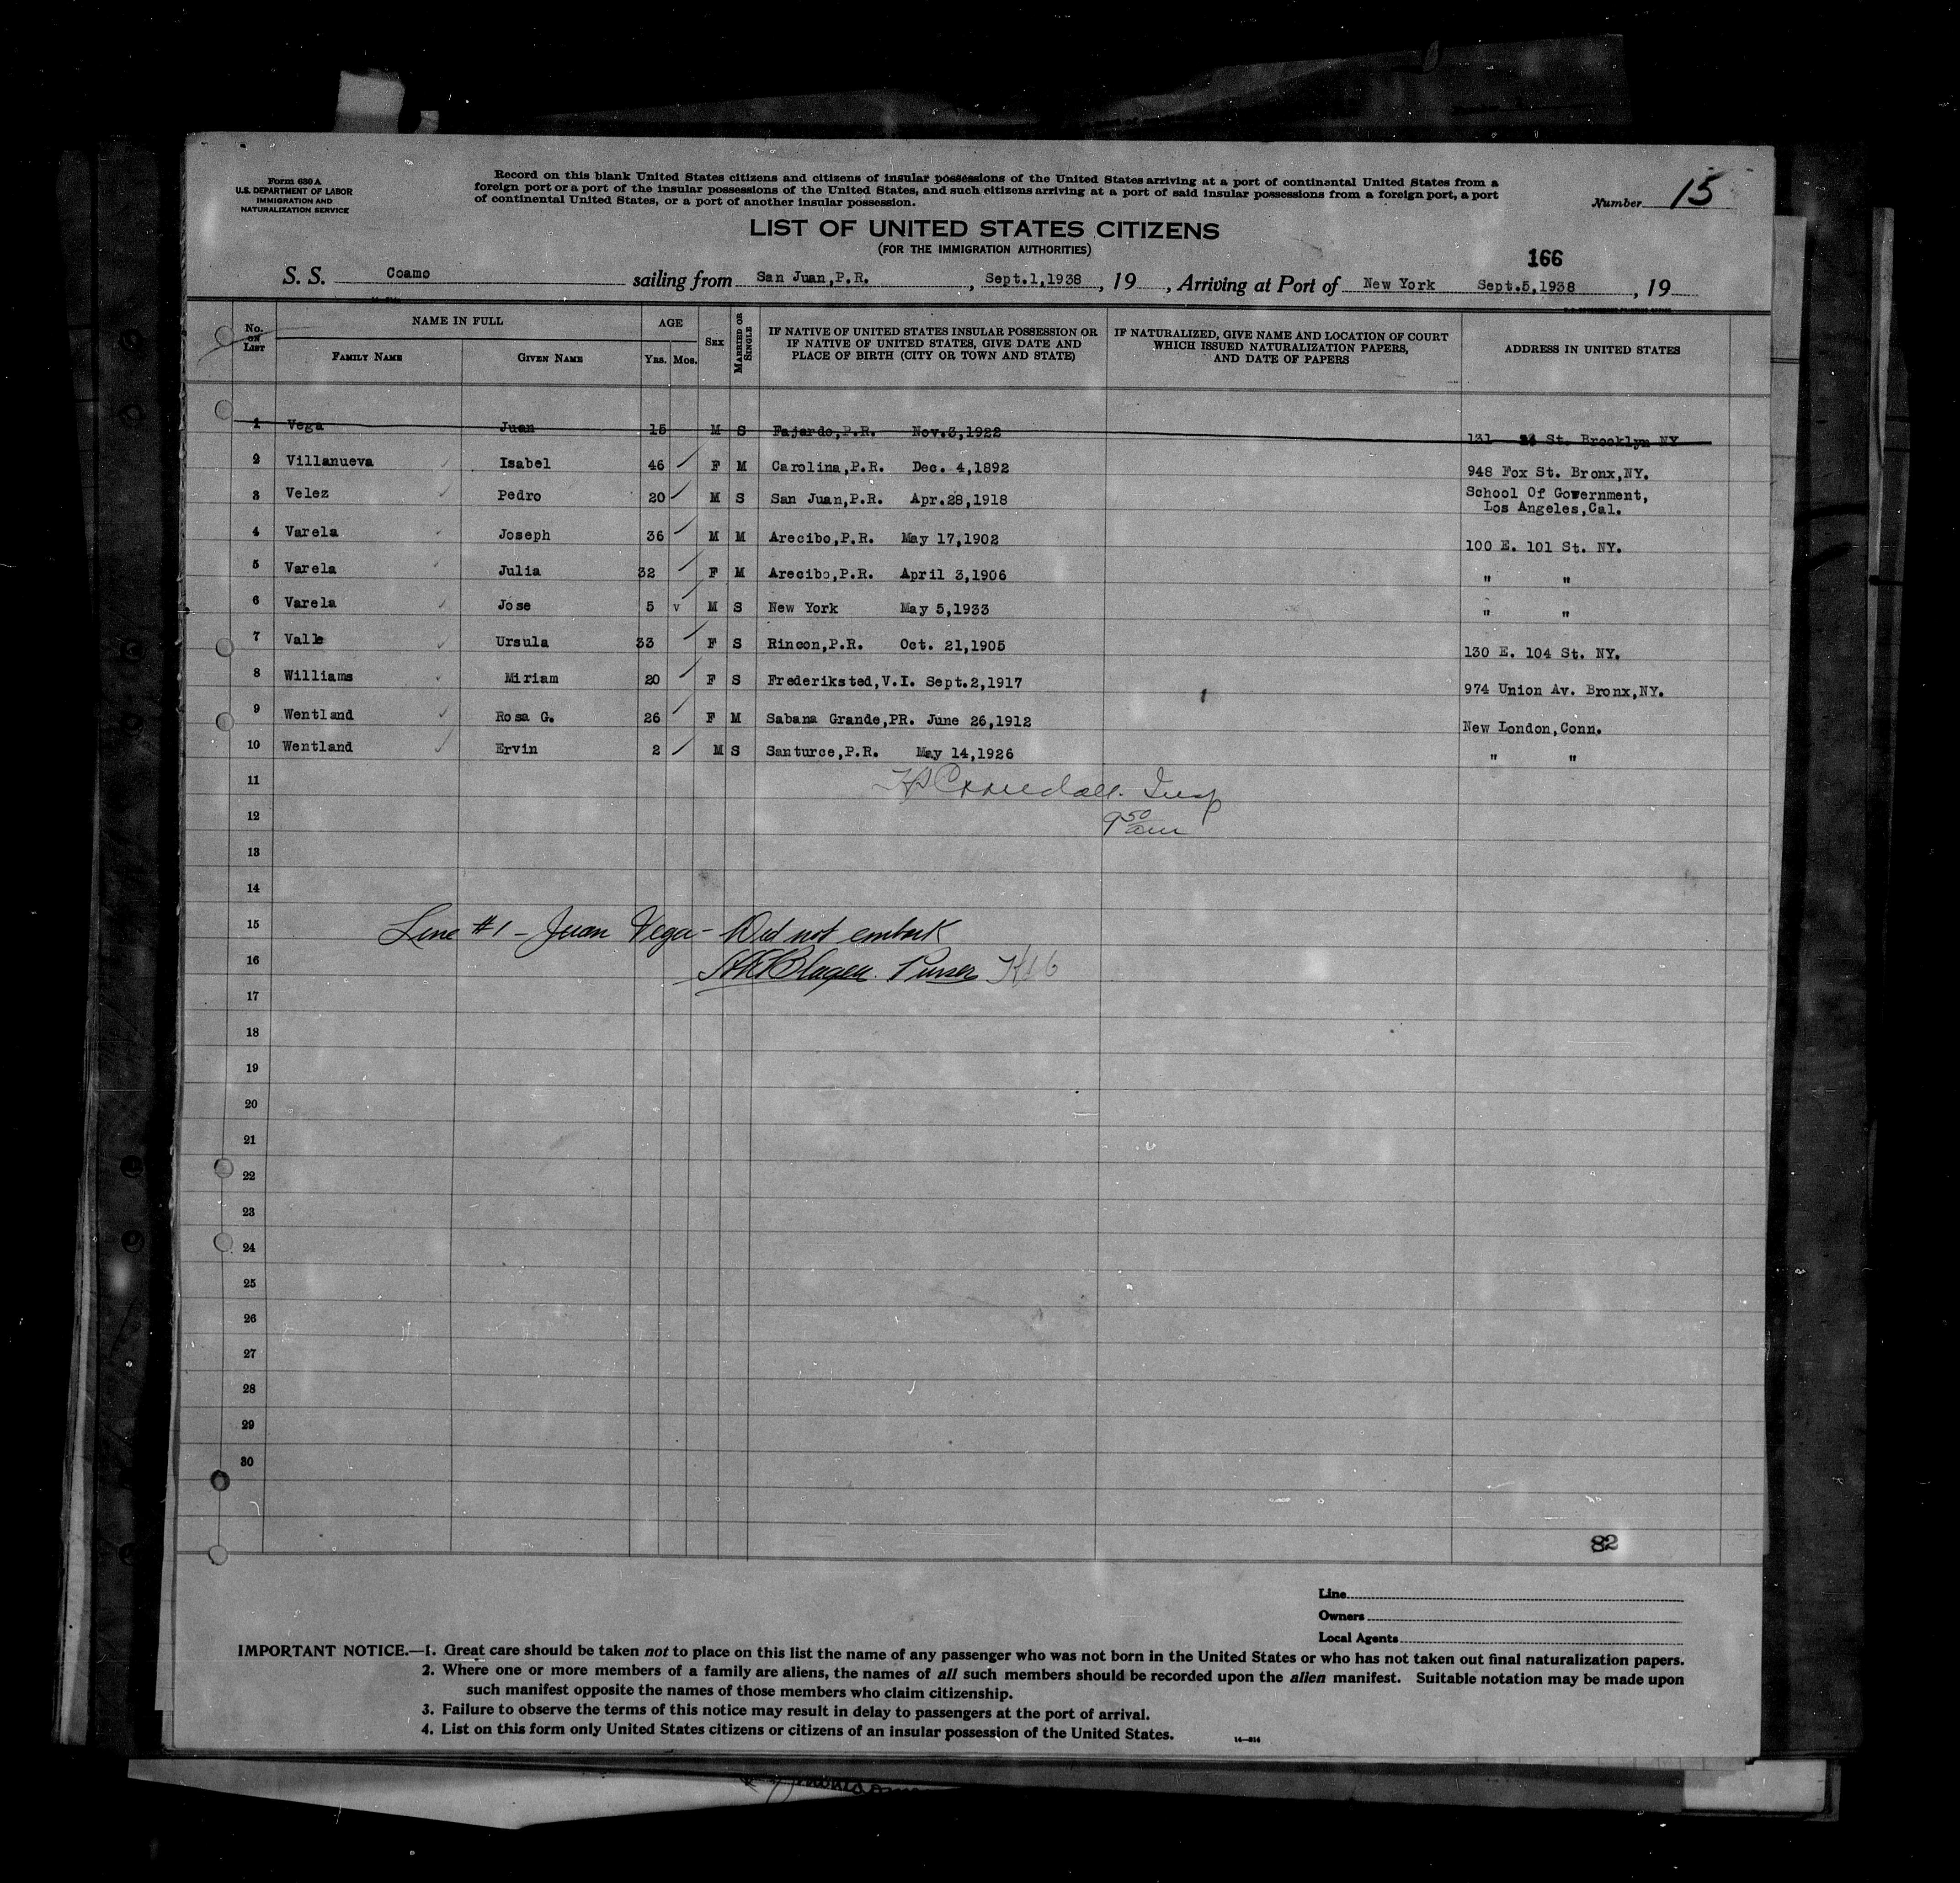 Form 630 A
U.S. DEPARTMENT OF LABOR
IMMIGRATION AND
NATURALIZATION SERVICE
Record on this blank United States citizens and citizens of insular possessions of the United States arriving at a port of continental United States from a
foreign port or a port of the insular possessions of the United States, and such citizens arriving at a port of said insular possessions from a foreign port, a port
of continental United States, or a port of another insular possession.
Number 15
LIST OF UNITED STATES CITIZENS
(FOR THE IMMIGRATION AUTHORITIES)
166
S. S. Coamo sailing from San Juan,P.R. , Sept.1,1938 , 19 , Arriving at Port of New York Sept.5,1938 , 19
No. ON LIST
NAME IN FULL
FAMILY NAME
GIVEN NAME
AGE
YRS. MOS.
SEX
MARRIED OR SINGLE
IF NATIVE OF UNITED STATES INSULAR POSSESSION OR
IF NATIVE OF UNITED STATES, GIVE DATE AND
PLACE OF BIRTH (CITY OR TOWN AND STATE)
IF NATURALIZED, GIVE NAME AND LOCATION OF COURT
WHICH ISSUED NATURALIZATION PAPERS,
AND DATE OF PAPERS
ADDRESS IN UNITED STATES
1 Vega Juan 15 M S Fajardo,P.R. Nov.3,1922 131 St. Brooklyn NY
2 Villanueva Isabel 46 F M Carolina,P.R. Dec. 4,1892 948 Fox St. Bronx,NY.
3 Velez Pedro 20 M S San Juan,P.R. Apr.28,1918 School Of Government,
Los Angeles,Cal.
4 Varela Joseph 36 M M Arecibo,P.R. May 17,1902 100 E. 101 St. NY.
5 Varela Julia 32 F M Arecibo,P.R. April 3,1906 " "
6 Varela Jose 5 v M S New York May 5,1933 " "
7 Valle Ursula 33 F S Rincon,P.R. Oct. 21,1905 130 E. 104 St. NY.
8 Williams Miriam 20 F S Frederiksted,V.I. Sept.2,1917 974 Union Av. Bronx,NY.
9 Wentland Rosa G. 26 F M Sabana Grande,PR. June 26,1912 New London,Conn.
10 Wentland Ervin 2 M S Santurce,P.R. May 14,1926 " "
11 Insp
12 9 50 am
13
14
15 Line #1 - Juan Vega - Did not embark
16 Purser
17
18
19
20
21
22
23
24
25
26
27
28
29
30
82
Line
Owners
Local Agents
IMPORTANT NOTICE.—1. Great care should be taken not to place on this list the name of any passenger who was not born in the United States or who has not taken out final naturalization papers.
2. Where one or more members of a family are aliens, the names of all such members should be recorded upon the alien manifest. Suitable notation may be made upon
such manifest opposite the names of those members who claim citizenship.
3. Failure to observe the terms of this notice may result in delay to passengers at the port of arrival.
4. List on this form only United States citizens or citizens of an insular possession of the United States.
14—814